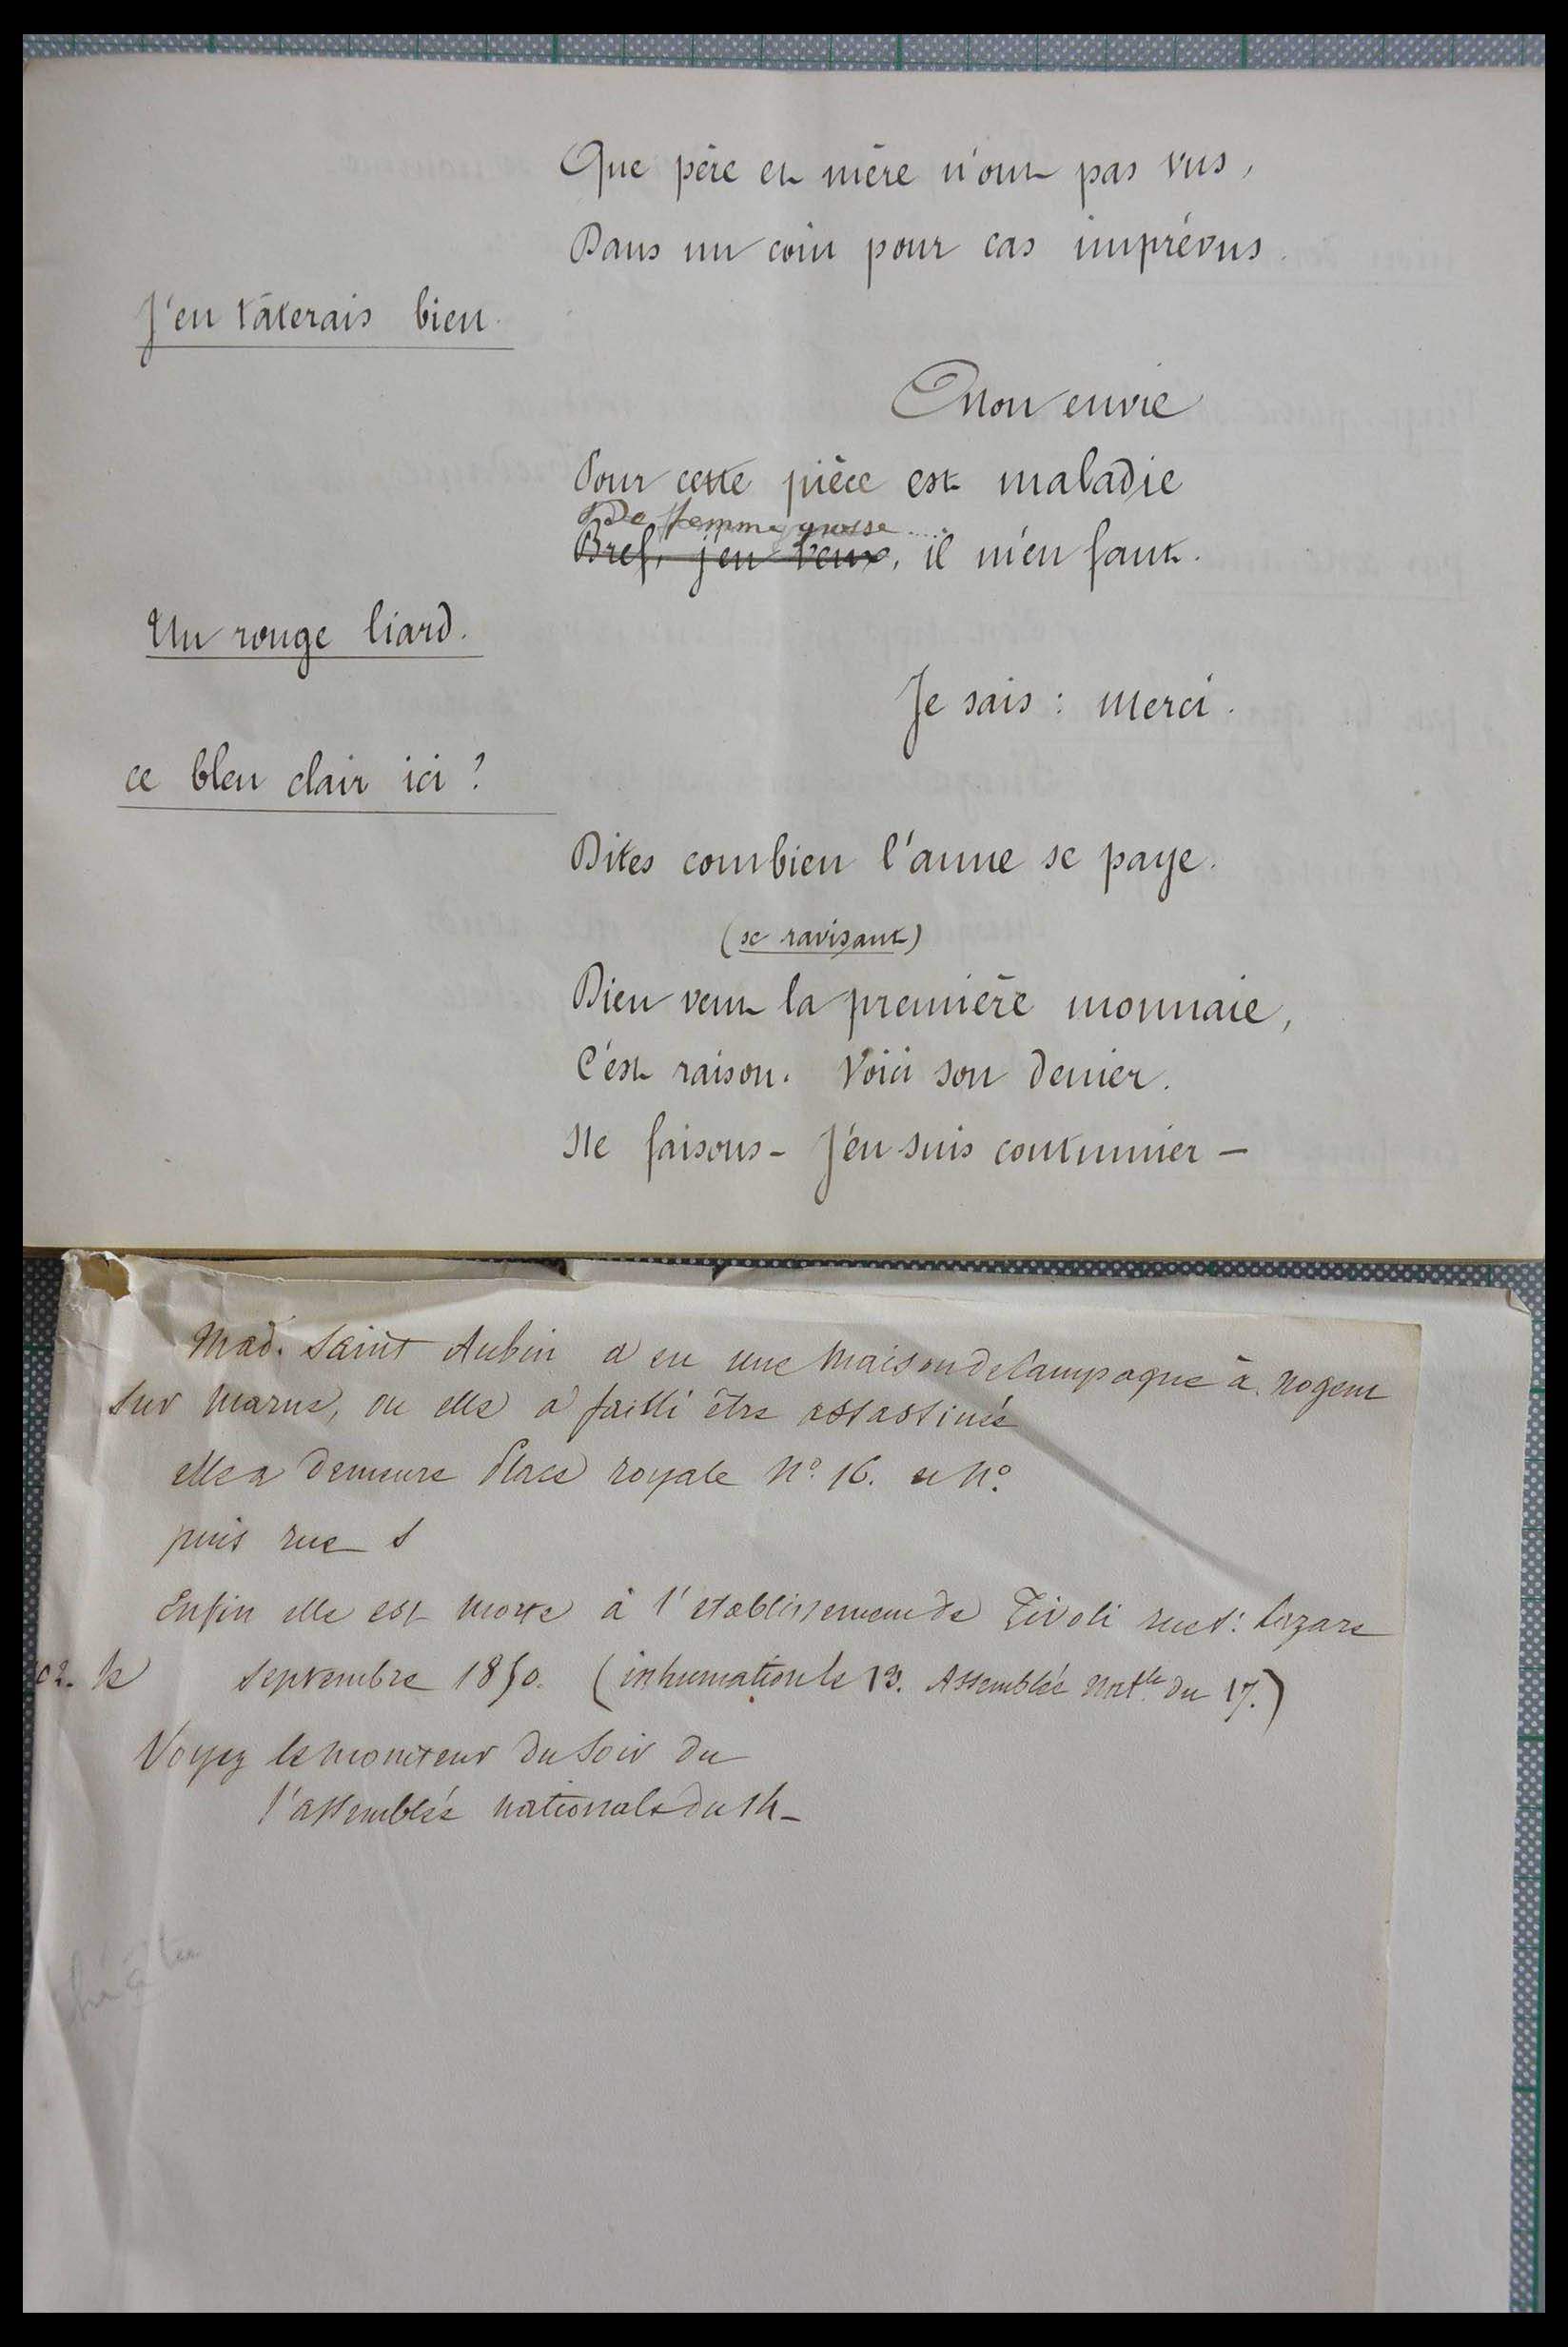 Que père et mère n'ont pas vus,
Dans un coin pour cas imprévus.
J'en tâterais bien.
Mon envie
Pour cette pièce est maladie
De femme grosse....
Bref, j'en veux, il m'en faut.
Un rouge liard.
Je sais : merci.
ce bleu clair ici ?
Dites combien l'aune se paye.
(se ravisant)
Dieu veut la première monnaie,
C'est raison. Voici son denier.
Ne faisons - J'en suis coutumier -
Mad. Saint Aubin a eu une maison de Campagne à Nogent
sur Marne, ou elle a failli être assassinée
elle a demeure Place royale N° 16. et N°
puis rue S
Enfin elle est morte à l'etablissement de Tivoli rue St: Lazare
102. le septembre 1850. (inhumation le 13. Assemblée Natle du 17.)
Voyez le moniteur du Soir du
l'assemblée nationale du 14-